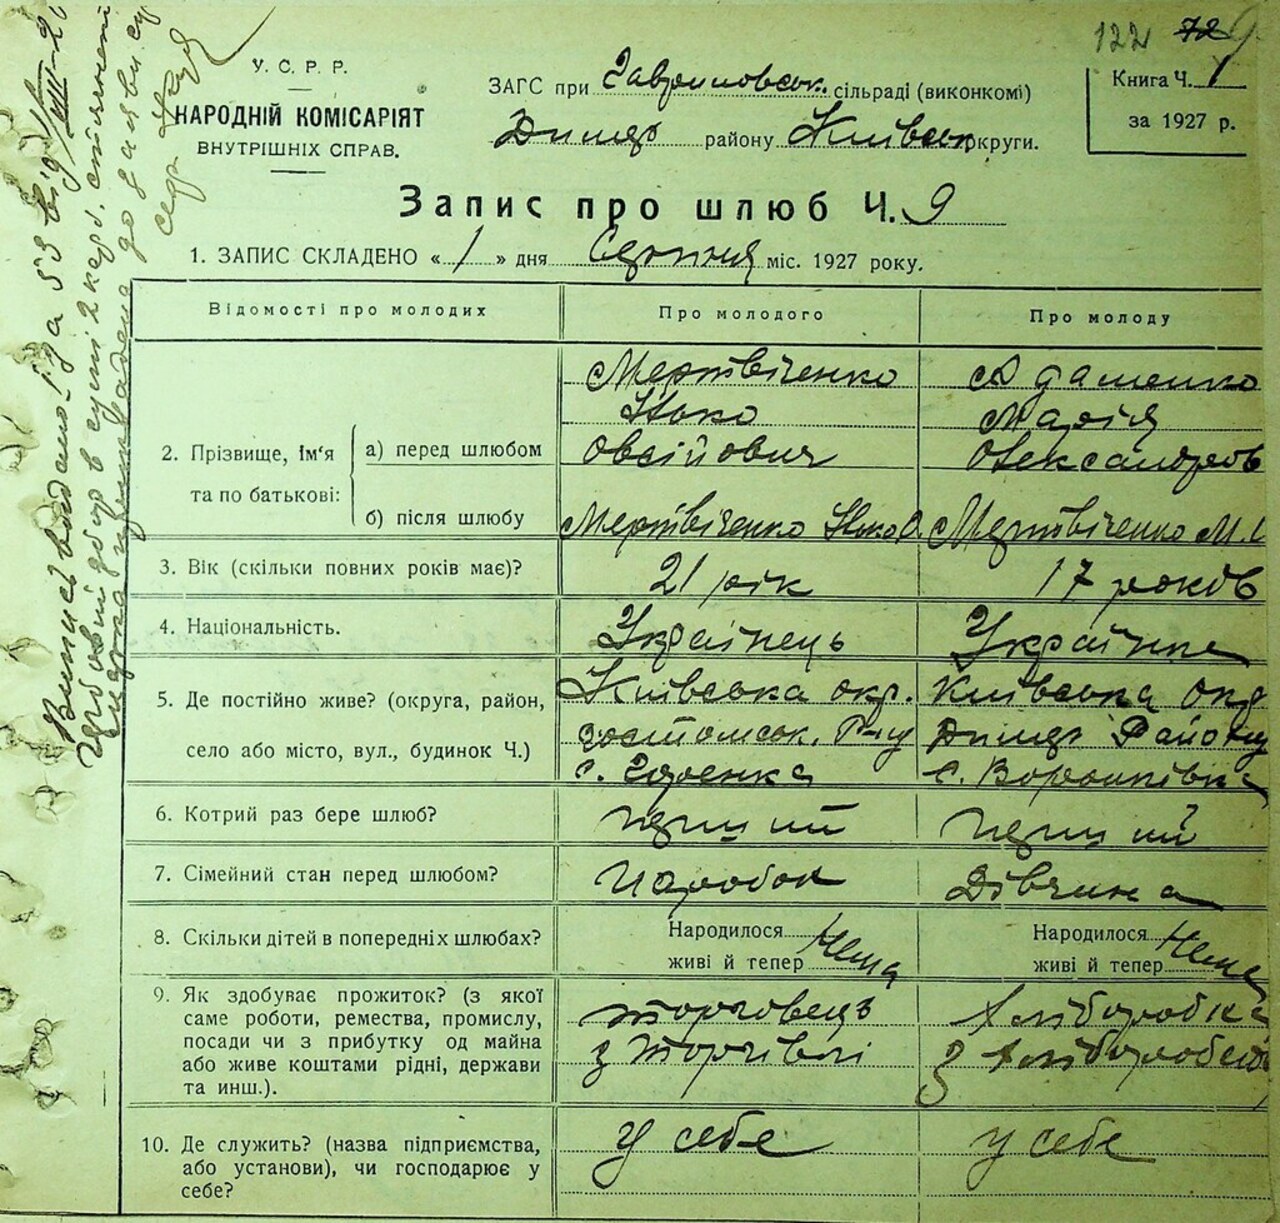 122 72 9
У. С. Р. Р.
НАРОДНІЙ КОМІСАРІЯТ
ВНУТРІШНІХ СПРАВ.
ЗАГС при Гаврилівськ. сільраді (виконкомі)
Димер району Київськ округи.
Книга Ч. 1
за 1927 р.
Запис про шлюб Ч. 9
1. ЗАПИС СКЛАДЕНО « 1 » дня Серпня міс. 1927 року.
Відомості про молодих Про молодого Про молоду
2. Прізвище, ім'я та по батькові:
а) перед шлюбом
Мертвіченко
Ілько
Овсійович
Адаменко
Марія
Олександров
б) після шлюбу Мертвіченко Ілько О. Мертвіченко М. О
3. Вік (скільки повних років має)? 21 рік 17 років
4. Національність. Українець Українка
5. Де постійно живе? (округа, район,
село або місто, вул., будинок Ч.)
Київська окр.
Гостомськ. Р-ну
с.
Київська окр
Димер Району
с. Воронківка
6. Котрий раз бере шлюб? перший перший
7. Сімейний стан перед шлюбом? Парубок Дівчина
8. Скільки дітей в попередніх шлюбах?
Народилося
живі й тепер Нема
Народилося
живі й тепер Нема
9. Як здобуває прожиток? (з якої
саме роботи, ремества, промислу,
посади чи з прибутку од майна
або живе коштами рідні, держави
та инш.).
торговець
з торгівлі
Хліборобка
з хліборобства
10. Де служить? (назва підприємства,
або установи), чи господарює у
себе?
у себе
у себе